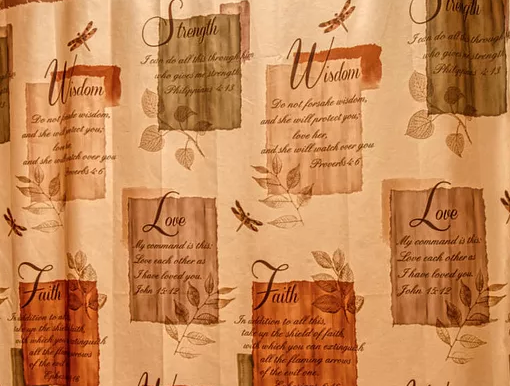 Strength
I can do all this through him
who gives me strength.
Philippians 4:13
Strength
I can do all this through
who gives me strength
Philippians 4:13
Wisdom
Do not forsake wisdom,
and she will protect you;
love
and she will watch over you
Proverbs 4:6
Wisdom
Do not forsake wisdom,
and she will protect you;
love her,
and she will watch over you
Proverbs 4:6
Love
My command is this:
Love each other as
I have loved you.
John 15:12
Love
My command is this:
Love each other as
I have loved you.
John 15:12
Faith
In addition to all this,
take up the shield of faith,
with which you can extinguish
all the flaming arrows
of the evil one.
Faith
In addition to all this,
take up the shield of faith,
with which you can extinguish
all the flaming arrows
of the evil one.